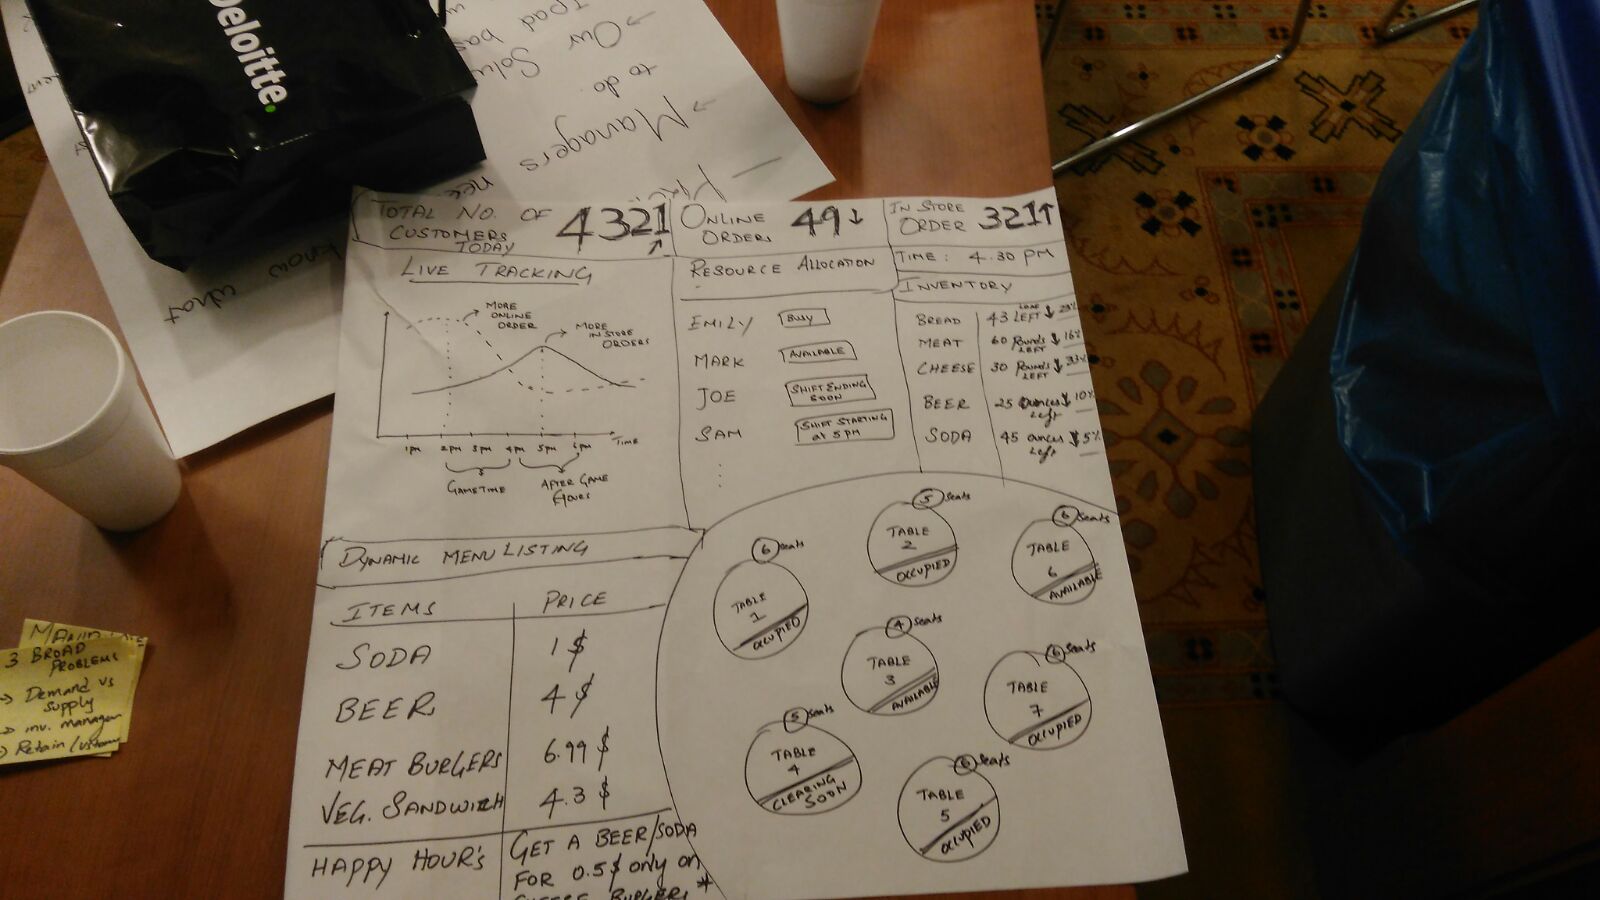 Deloitte.
Our Solu
to do.
Managers
know what
TOTAL NO. OF
CUSTOMERS
TODAY
4321 ↑
ONLINE
ORDERS
49 ↓
IN STORE
ORDER
321 ↑
TIME: 4.30 PM
LIVE TRACKING
MORE
ONLINE
ORDER
MORE
IN STORE
ORDERS
1pm 2pm 3pm 4pm 5pm 6pm TIME
GAMETIME
AFTER GAME
HOURS
RESOURCE ALLOCATION
EMILY BUSY
MARK AVAILABLE
JOE SHIFT ENDING
SOON
SAM SHIFT STARTING
at 5 PM
INVENTORY
BREAD 43 LOAF LEFT ↓ 23%
MEAT 60 Pounds LEFT ↓ 16%
CHEESE 30 Pounds LEFT ↓ 33%
BEER 25 Ounces Left ↓ 10%
SODA 45 ounces Left ↓ 5%
DYNAMIC MENU LISTING
ITEMS PRICE
SODA 1 $
BEER 4 $
MEAT BURGERS 6.99 $
VEG. SANDWICH 4.3 $
HAPPY HOUR's
GET A BEER/SODA
FOR 0.5$ only on
BURGERS *
6 Seats
TABLE
1
OCCUPIED
5 Seats
TABLE
2
OCCUPIED
6 Seats
TABLE
6
AVAILABLE
4 Seats
TABLE
3
AVAILABLE
6 Seats
TABLE
7
OCCUPIED
5 Seats
TABLE
4
CLEARING
SOON
6 Seats
TABLE
5
OCCUPIED
3 BROAD
PROBLEMS
→ Demand vs
supply
→ inv. manager
→ Retain